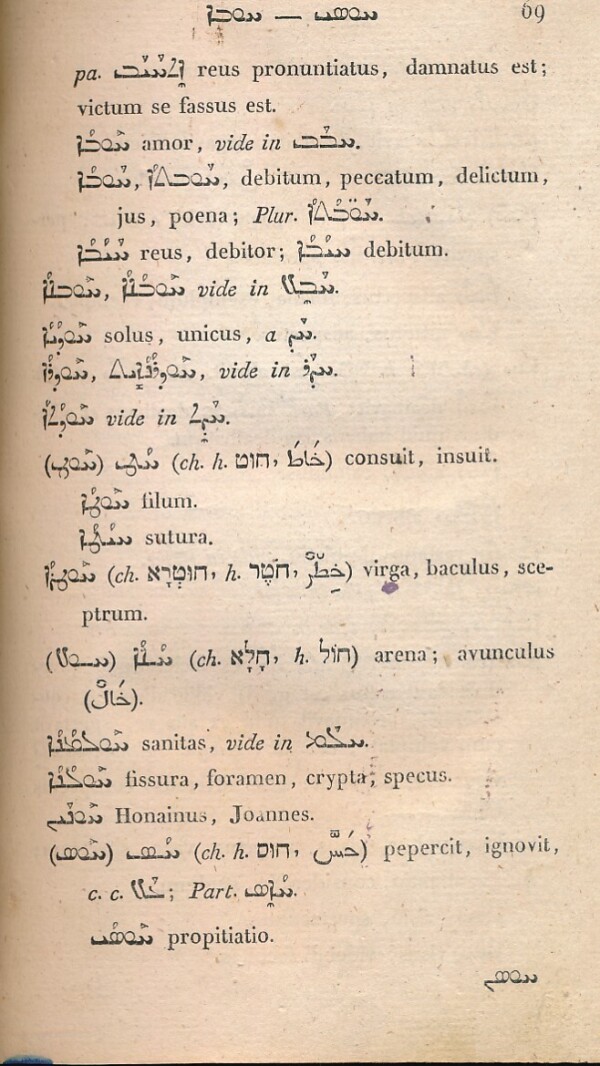 ܚܘܒܐ — ܚܘܣ 69
pa. ܐܬܚܝܒ reus pronuntiatus, damnatus est;
victum se fassus est.
ܚܘܒܐ amor, vide in ܚܒܒ.
ܚܘܒܐ, ܚܘܒܬܐ, debitum, peccatum, delictum,
jus, poena; Plur. ܚܘܒܬܐ.
ܚܝܒܐ reus, debitor; debitum.
vide in ܚܒܠ.
solus, unicus, a ܚܕ.
vide in ܚܕܪ.
vide in
(ܚܘܛ) ܚܛ (ch. h. חוט, خَاطَ) consuit, insuit.
ܚܘܛܐ filum.
ܚܝܛܐ sutura.
ܚܘܛܪܐ (ch. חוּטְרָא, h. חֹטֶר, خِطْرٌ) virga, baculus, sce-
ptrum.
(ܚܘܠ) ܚܠܐ (ch. חָלָא, h. חוֹל) arena; avunculus
(خَالٌ).
ܚܘܠܡܢܐ sanitas, vide in ܚܠܡ.
fissura, foramen, crypta, specus.
Honainus, Joannes.
(ܚܘܣ) ܚܣ (ch. h. חוס, حَسَّ) pepercit, ignovit,
c. c. ܥܠ; Part. ܚܐܣ.
propitiatio.